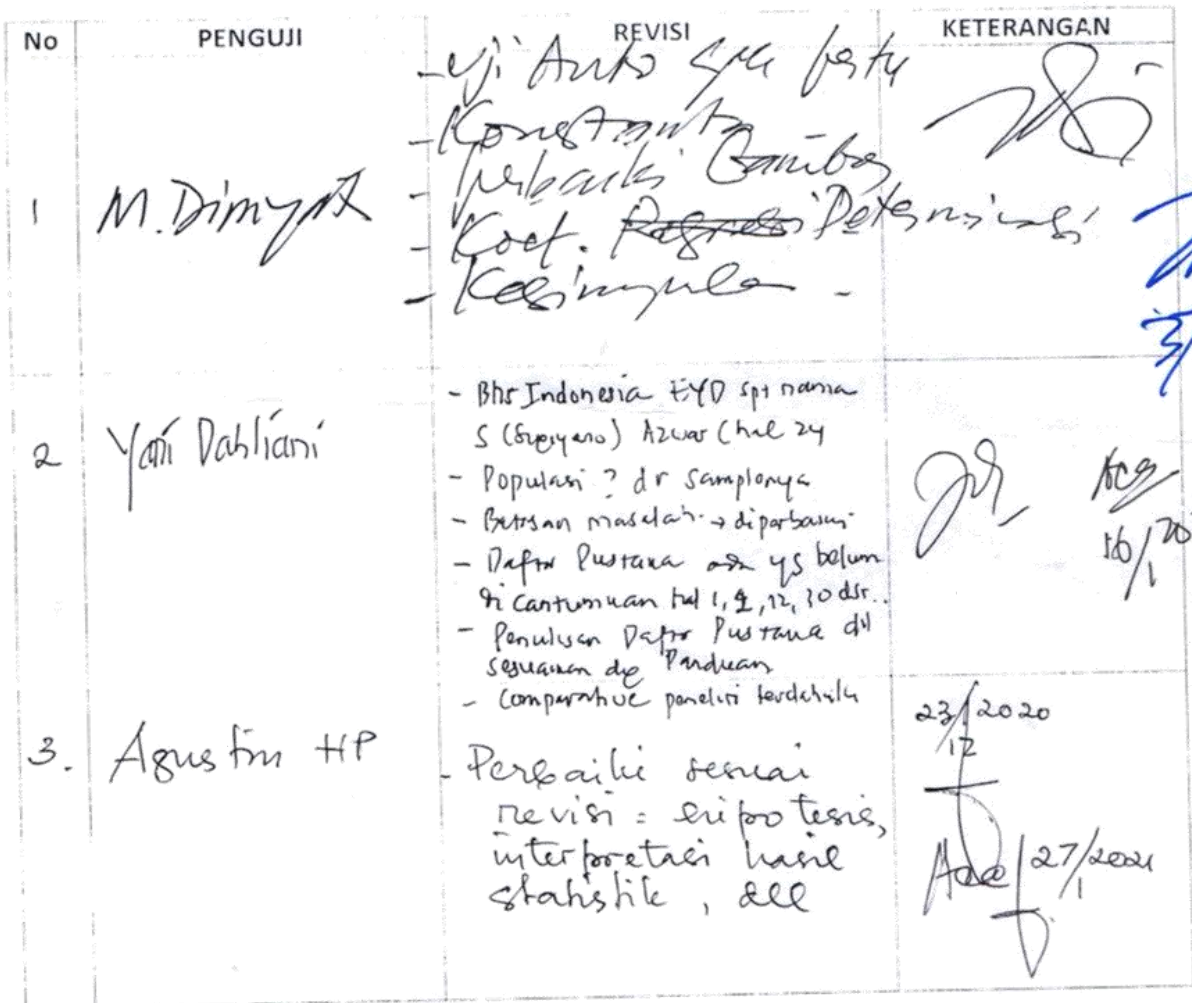 No PENGUJI REVISI KETERANGAN
1 M. Dimyati
- Uji Auto
- Konstanta
- Perbaiki Gambar
- Koef. Regresi Determinasi
- Kesimpula -
2 Yani Dahliani
- Bhs Indonesia EYD spt nama
S (Sugiyono) Azwar (hal 24
- Populasi ? dr samplenya
- Batasan masalah → diperbarui
- Daftar Pustaka ada yg belum
di cantumkan hal 1, 2, 12, 30 dst..
- Penulisan Daftar Pustaka
sesuaikan dg Panduan
- Comparative peneliti terdahulu
Acc
16/1 20
3. Agustin HP
- Perbaiki sesuai
revisi = hipotesis,
interpretasi hasil
statistik, dll
23/12 2020
Acc 27/1 2021